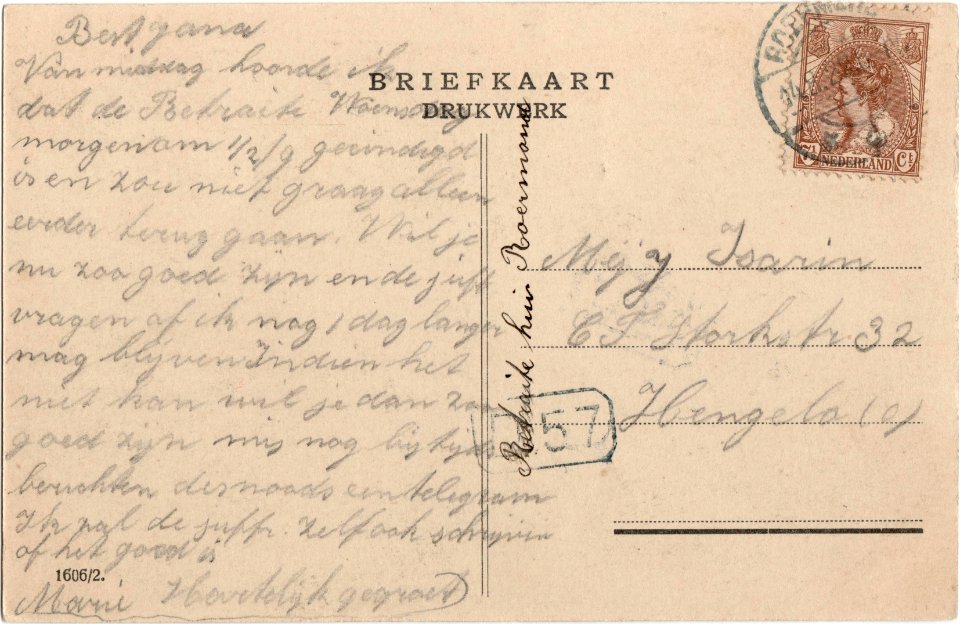 Best Jana
Van middag hoorde ik
dat de Retraite Woensdag
morgen om 1/2/9 geeindigd
is en zou niet graag alleen
eerder terug gaan. Wil je
nu zoo goed zijn en de juff
vragen of ik nog 1 dag langer
mag blijven Indien het
niet kan wil je dan zoo
goed zijn mij nog bijtijds
berichten desnoods een telegram
Ik zal de juffr. zelf ook schrijven
of het goed is
Marie Hartelijk gegroet
1606/2.
BRIEFKAART
DRUKWERK
Retraite huis Roermond
ROERMOND
7½ NEDERLAND Ct
Mej J Isarin
C T Storkstr 32
Hengelo (o)
57